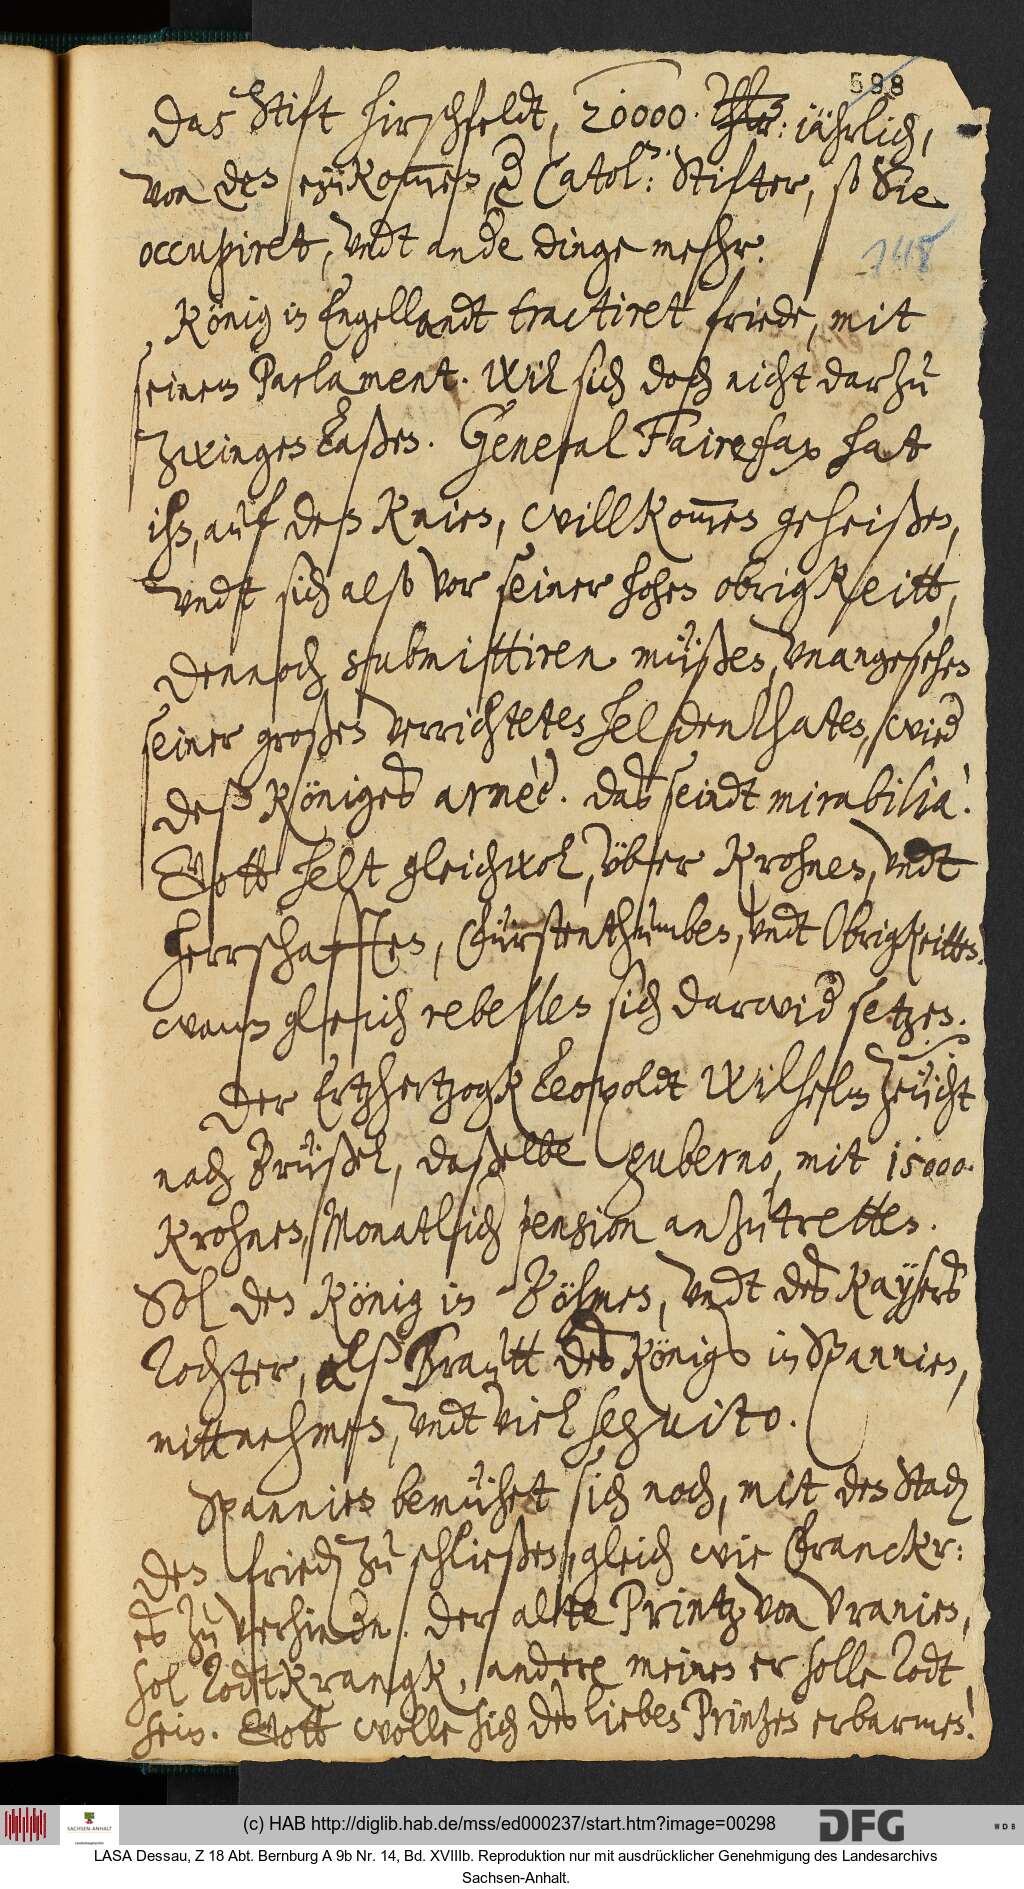 598
das Stift Hirschfeldt, 20000 Thlr: iährlich,
von den eyükom̅en, Catol: Stifter, so Sie
occupiret, vndt ande dinge mehr.
748
König in Engellandt tractiret friede, mit
seinem Parlament. Wil sich doch nicht darzu
zwingen laßen. General Fairefax hat
ihn, auf den Knien, willkom̅en geheißen,
vndt sich also vor seiner hohen obrigkeitt,
dennoch submittiren müßen, vnangesehen
seiner großen verrichteten heldenthaten, wied
deß Königes armèe. das seindt mirabilia!
Gott helt gleichwol, vber Krohnen, vndt
herrschafften, Fürstenthumben, vndt Obrigkeitten,
wann gleich rebellen sich darwid setzen.
Der Ertzhertzogk Leopoldt Wilhelm zeücht
nach Brüßel, daßelbe guberno, mit 15000.
Krohnen, Monatlich pension anzutretten.
Sol den König in Böhmen, vndt des Kaysers
Tochter, alß Brautt des Königs in Spannien,
mittnehmen, vndt viel seguito.
Spannien bemühet sich noch, mit den Stad
den fried zu schließen, gleich wie Franckr:
es zu verhindn. der alte Printz von Vranien,
sol Todtkrangk, andere meinen er solle Todt
sein. Gott wolle sich des lieben Printzen erbarmen!
(c) HAB http://diglib.hab.de/mss/ed000237/start.htm?image=00298
SACHSEN-ANHALT
DFG
WDB
LASA Dessau, Z 18 Abt. Bernburg A 9b Nr. 14, Bd. XVIIIb. Reproduktion nur mit ausdrücklicher Genehmigung des Landesarchivs
Sachsen-Anhalt.